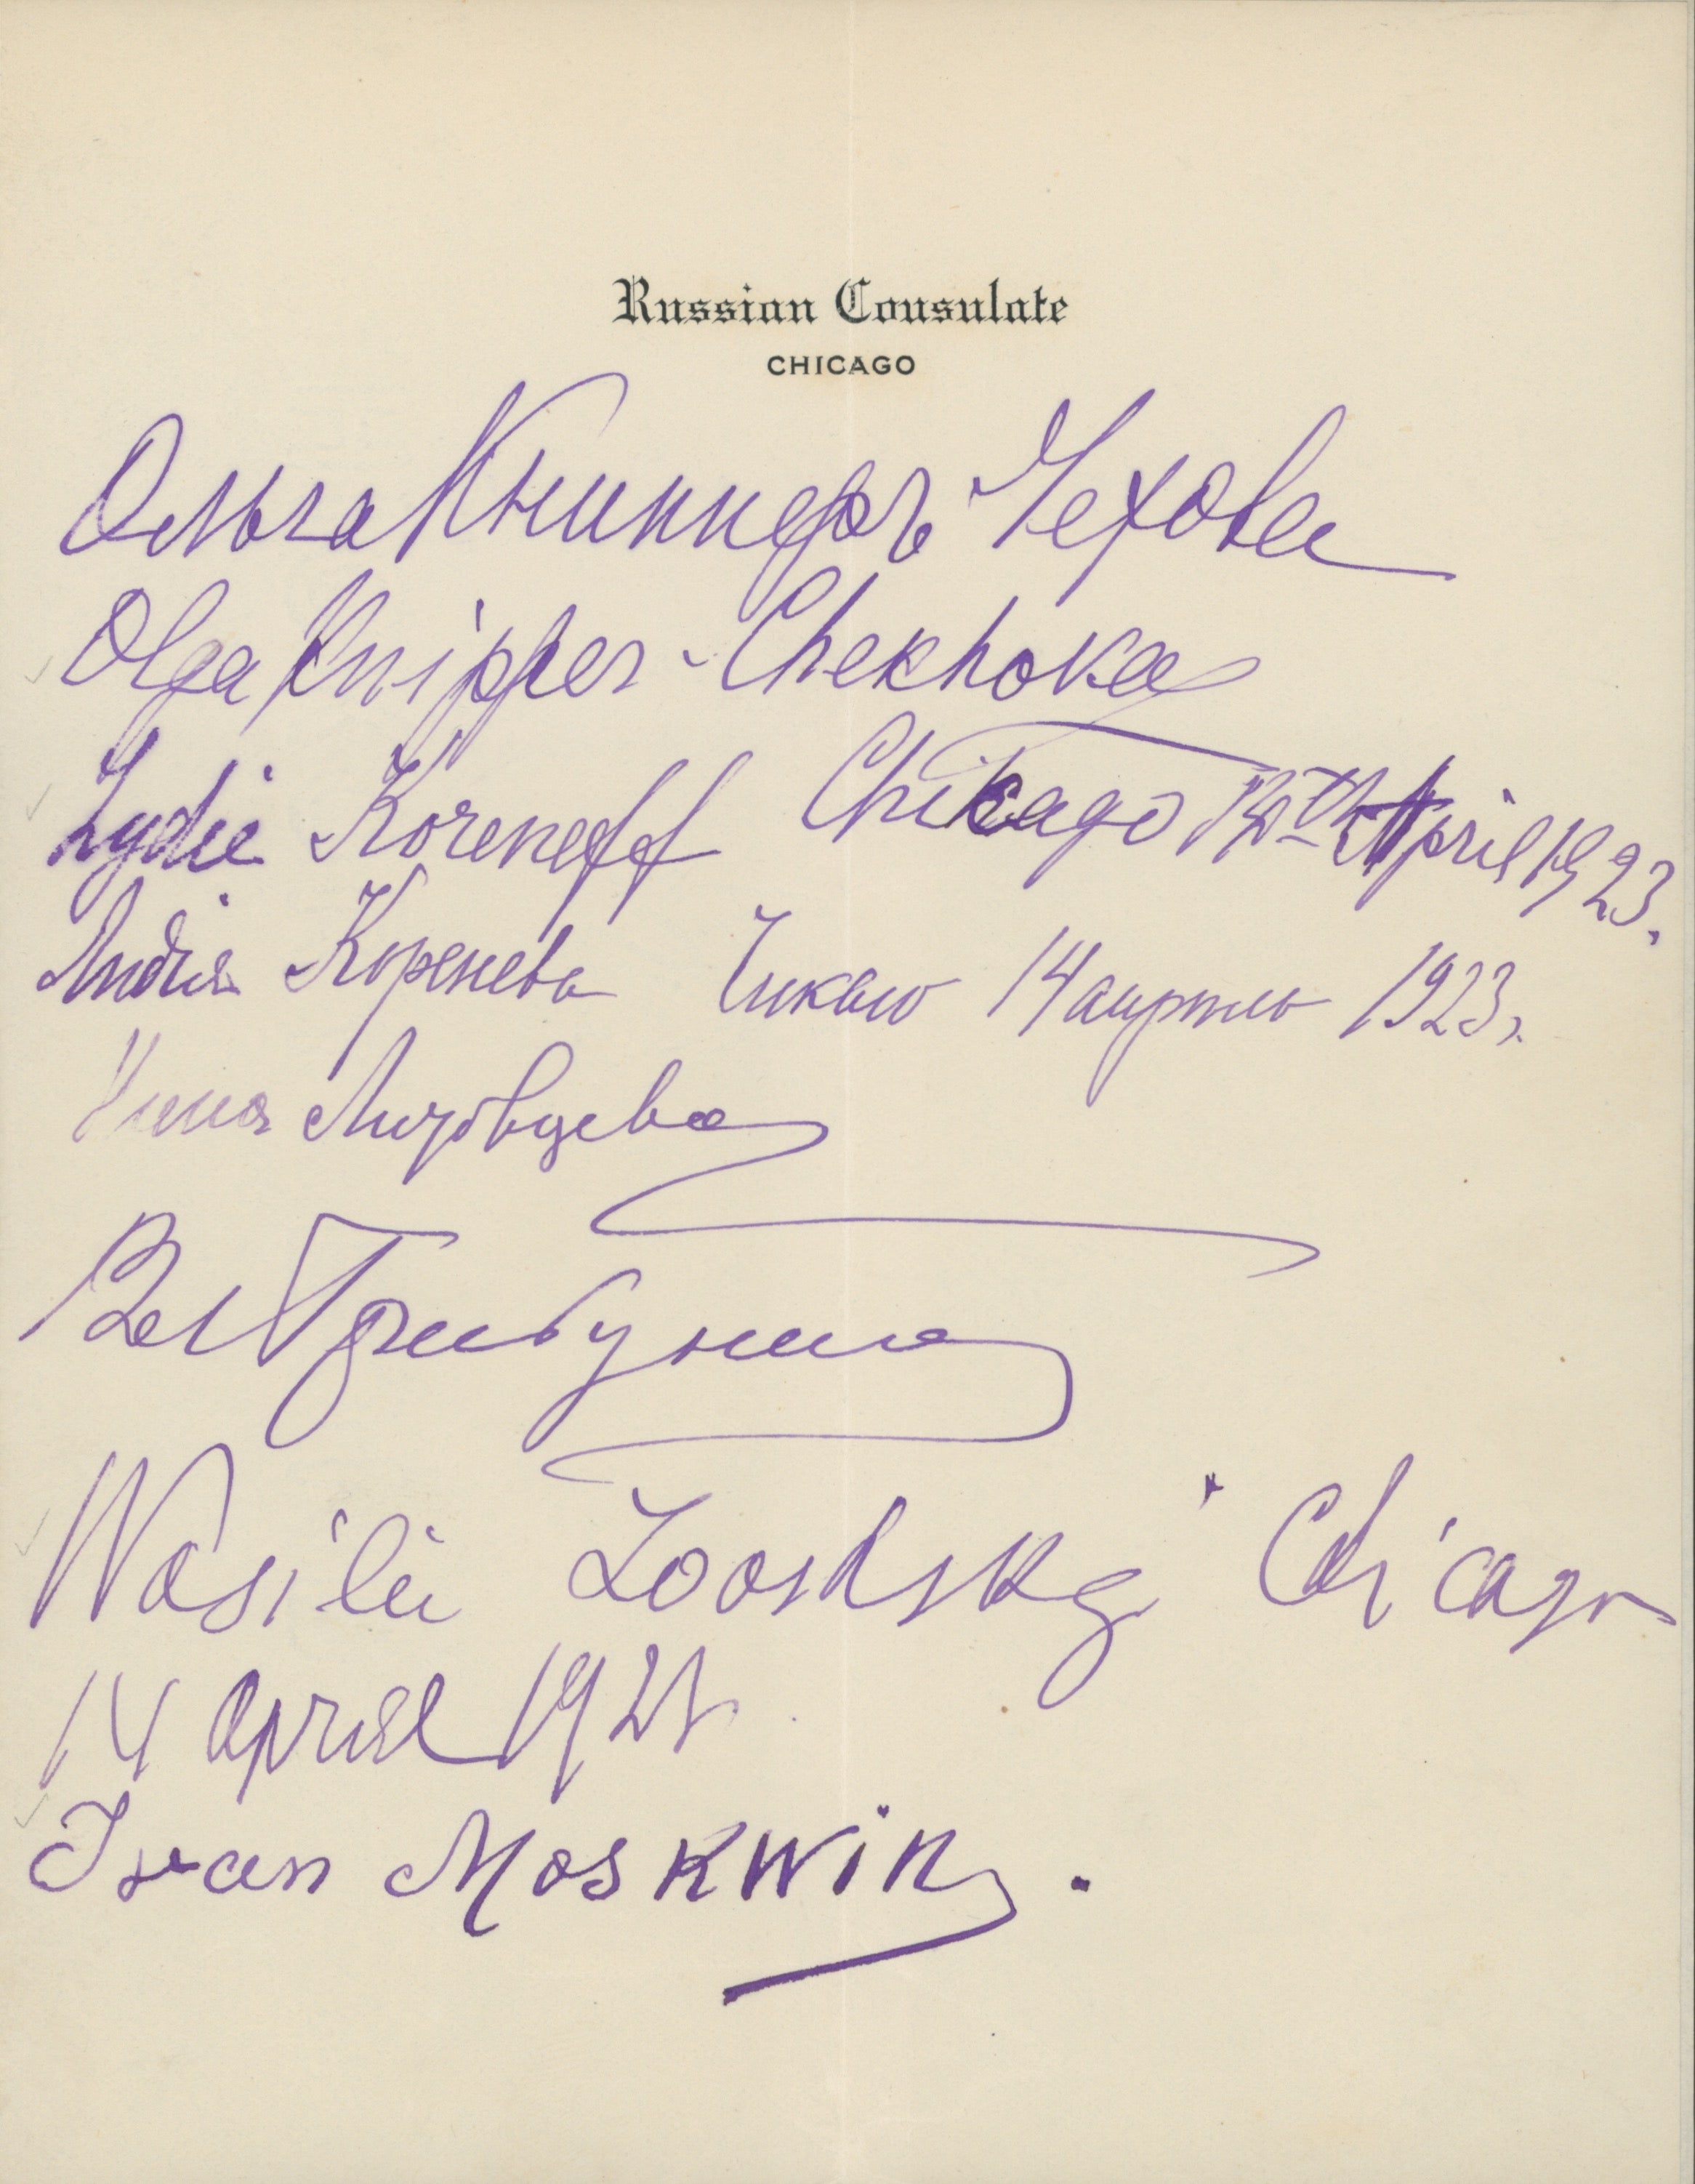 Russian Consulate
CHICAGO
Ольга Книпперъ Чехова
Olga Knipper-Chekhova
Lydie Koreneff Chicago 14th April 1923.
Лидiя Коренева Чикаго 14 апрель 1923 г.
Нина Литовцева
В Грибунина
Wasili Chicago
14 April 192
Ivan Moskwin.